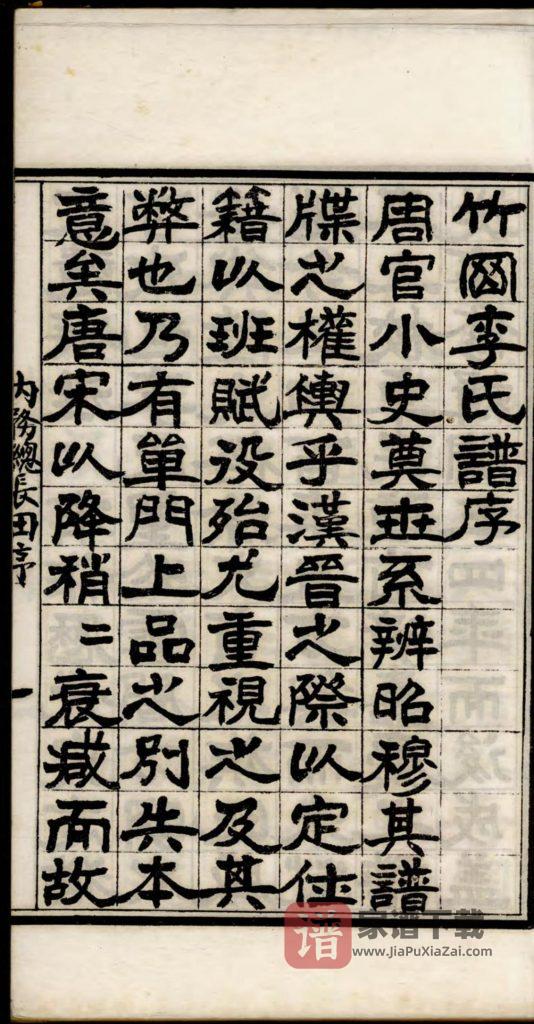 竹岡李氏譜序
周官小史奠世系辨昭穆其譜
牒之權輿乎漢晉之際以定仕
籍以班賦役殆尤重視之及其
弊也乃有單門上品之別失本
意矣唐宋以降稍〻衰減而故
內務總長田序
一
谱 家谱下载
www.JiaPuXiaZai.com